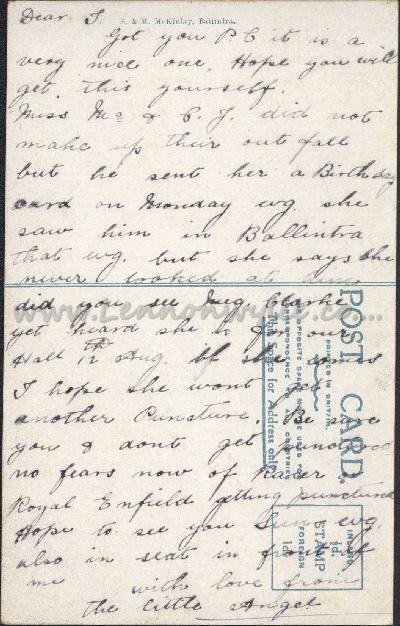 S. & M. McKinlay, Ballintra.
Dear J.
Got you P C it is a
very nice one. Hope you will
get this yourself.
Miss Mc & C. J. did not
make up their out fall
but he sent her a Birthday
card on Monday evg she
saw him in Ballintra
that evg. but she says she
never looked at him
did you see Meg Clarke
yet heard she is for our
Hall 12th Aug. if she comes
I hope she wont get
another Puncture. Be sure
you & dont get punctured
no fears now of
Royal Enfield getting punctured
Hope to see you Sun evg.
also in seat in front of
me with love from
the little Angel
POST CARD.
PRINTED IN BRITAIN
This Space for Address only.
INLAND
½d.
STAMP
FOREIGN
1d.